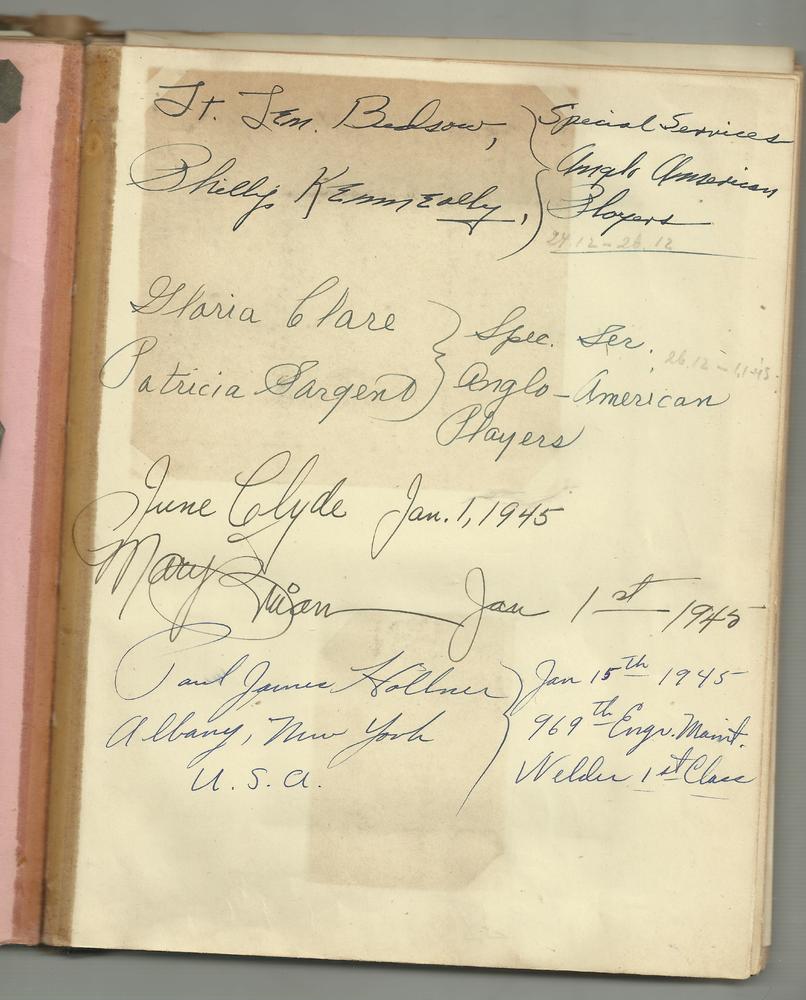 Lt. Len. Bedsow, } Special Services
Philly Kenneally, } Anglo American
Players
24.12 - 26.12
Gloria Clare } Spec. Ser.
26.12 - 1.1.45
Patricia Sargent } Anglo-American
Players
June Clyde Jan. 1, 1945
Mary Jan 1st 1945
Paul James Hollner } Jan 15th 1945
Albany, New York 969th Engr. Maint.
U.S.A. Welder 1st Class